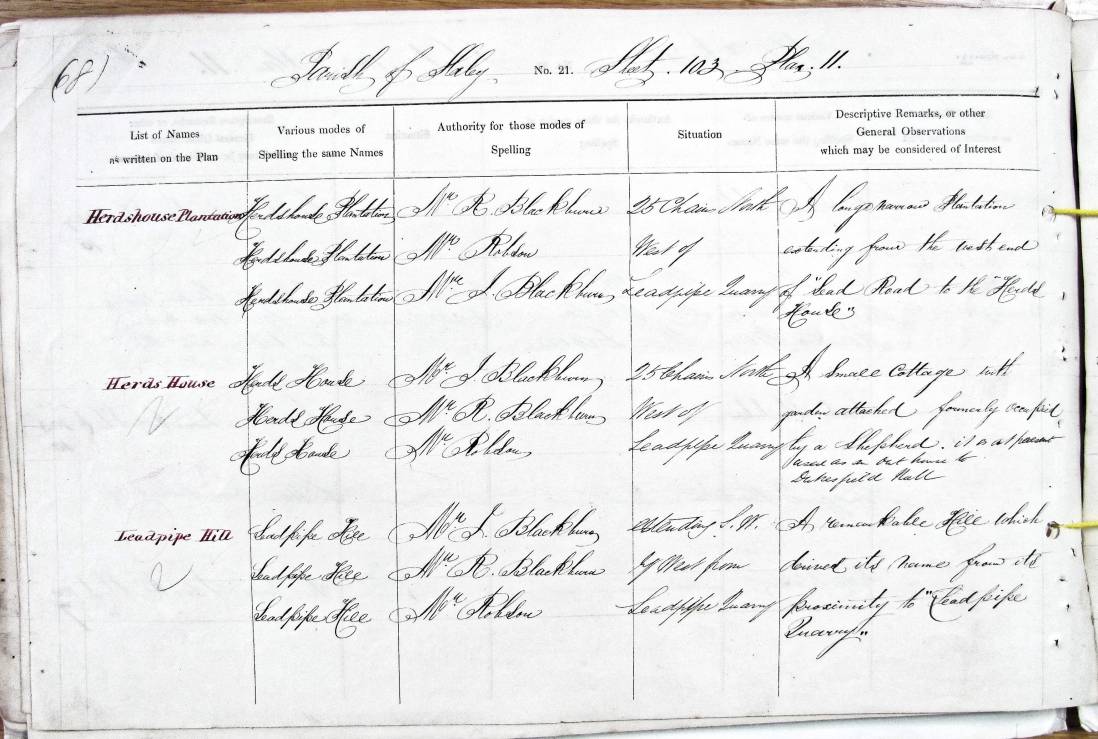 68)
Parish of Slaley No. 21. Sheet. 103 Plan. 11.
List of Names
as written on the Plan
Various modes of
Spelling the same Names
Authority for those modes of
Spelling
Situation
Descriptive Remarks, or other
General Observations
which may be considered of Interest
Herdshouse Plantation Herdshouse Plantation Mr R. Blackburn 25 Chains North A long narrow Plantation
Herdshouse Plantation Mr Robson West of extending from the west end
Herdshouse Plantation Mr J. Blackburn Leadpipe Quarry of "Lead Road to the "Herds
House"
Herds House Herds House Mr J. Blackburn 25 Chains North A small Cottage with
Herds House Mr R. Blackburn West of garden attached formerly occupied
Herds House Mr Robson Leadpipe Quarry by a Shepherd. it is at present
used as an out house to
Dukesfield Hall
Leadpipe Hill Leadpipe Hill Mr J. Blackburn extending S.W. A remarkable Hill which
Leadpipe Hill Mr R. Blackburn by West from derived its name from its
Leadpipe Hill Mr Robson Leadpipe Quarry proximity to "Leadpipe
Quarry"